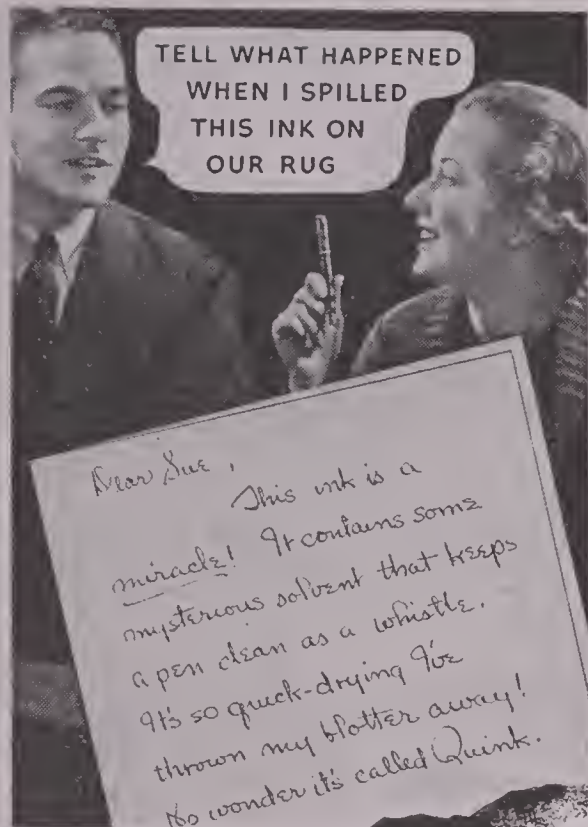 TELL WHAT HAPPENED
WHEN I SPILLED
THIS INK ON
OUR RUG
Dear Sue,
This ink is a
miracle! It contains some
mysterious solvent that keeps
a pen clean as a whistle.
It's so quick-drying I've
thrown my blotter away!
No wonder it's called Quink.